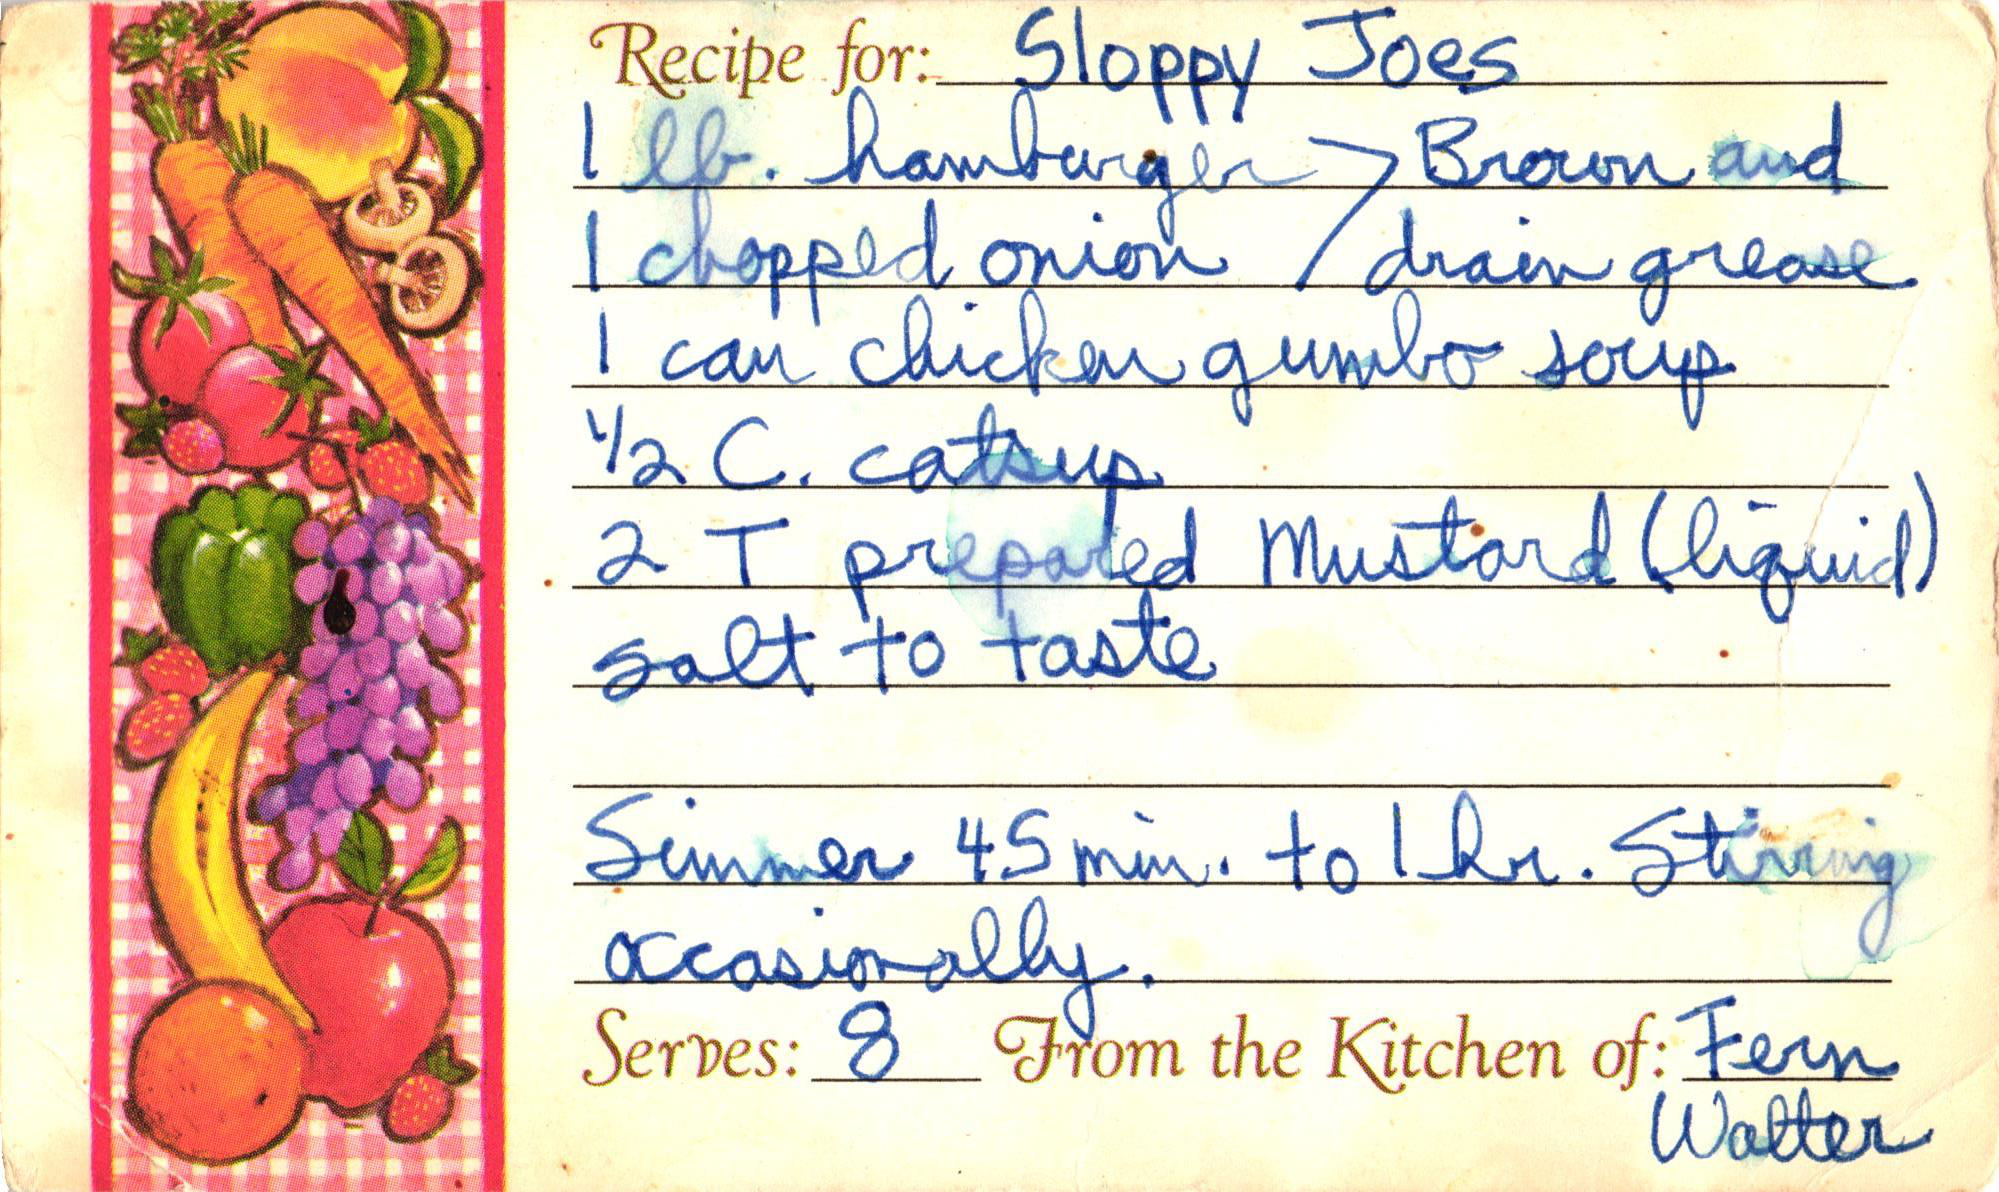 Recipe for: Sloppy Joes
1 lb. hamburger > Brown and
1 chopped onion / drain grease
1 can chicken gumbo soup
1/2 C. catsup
2 T prepared Mustard (liquid)
salt to taste
Simmer 45 min. to 1 hr. Stirring
occasionally.
Serves: 8 From the Kitchen of: Fern
Walter